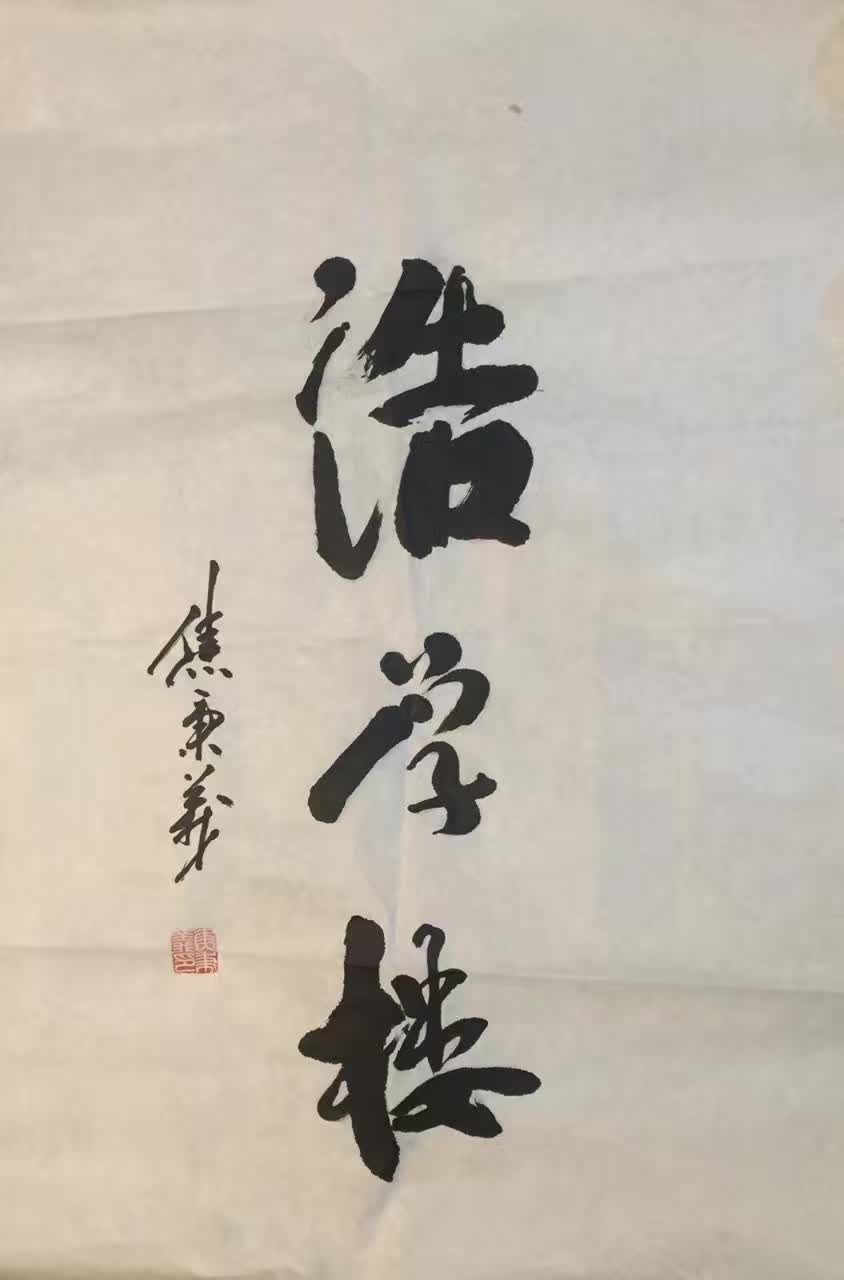 浩学楼
焦秉義